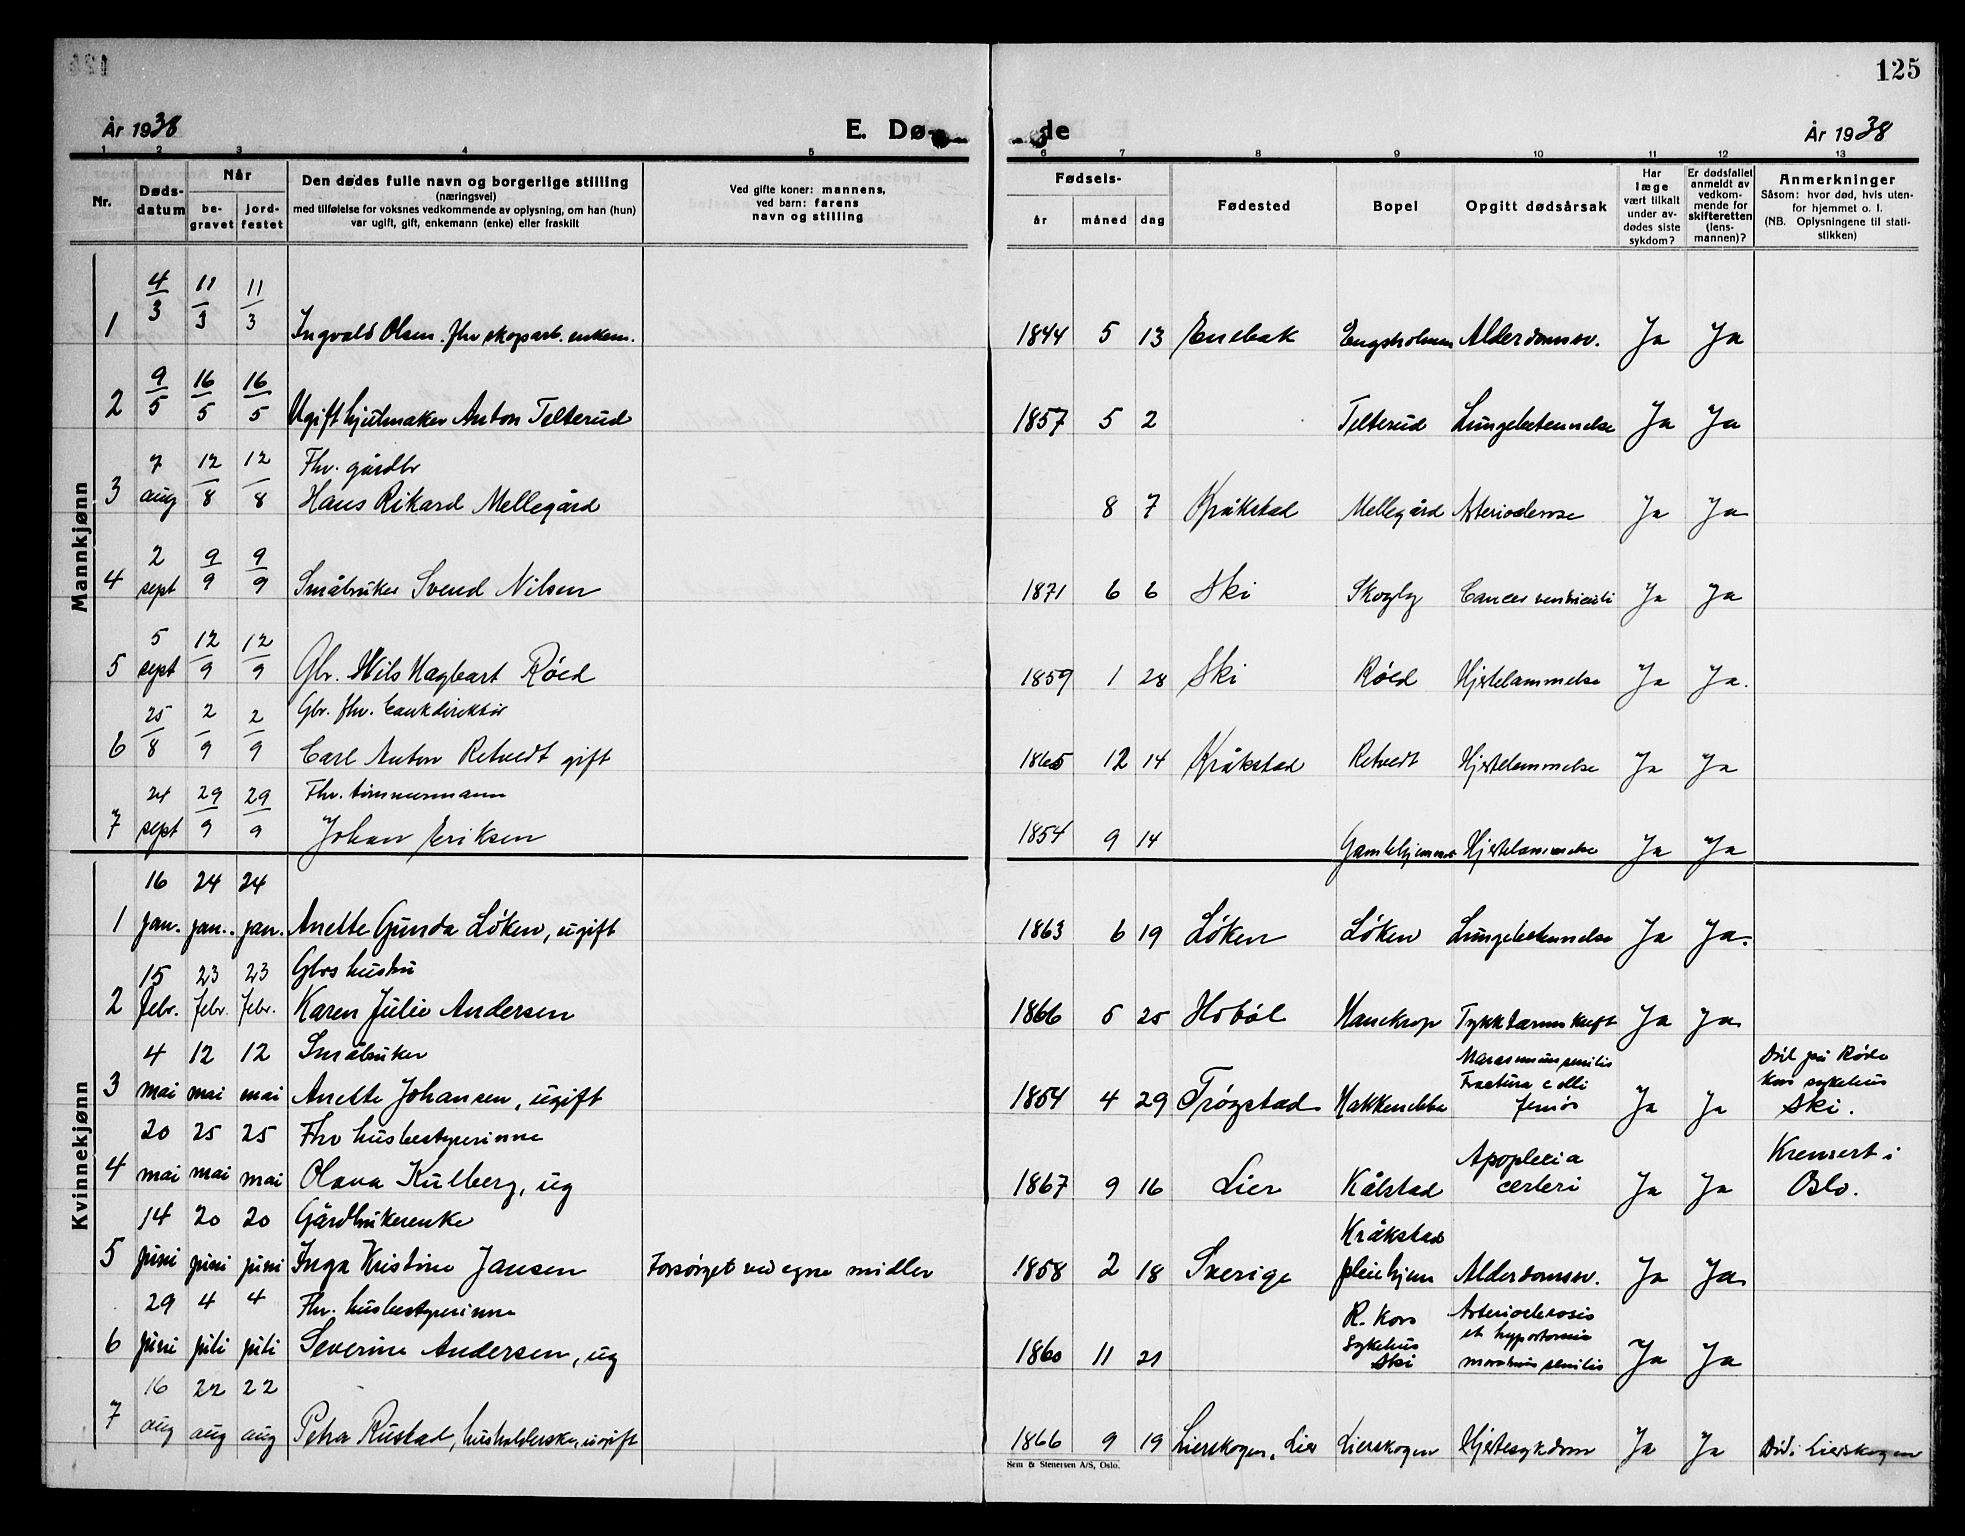 125
År 1938 E. Dø- de År 1938
1 2 3 4 5 6 7 8 9 10 11 12 13
Nr. Døds-datum Når be-gravet jord-festet Den dødes fulle navn og borgerlige stilling (næringsvei) med tilføielse for voksnes vedkommende av oplysning, om han (hun) var ugift, gift, enkemann (enke) eller fraskilt Ved gifte koner: mannens, ved barn: farens navn og stilling Fødsels- år måned dag Fødested Bopel Opgitt dødsårsak Har læge vært tilkalt under av-dødes siste sykdom? Er dødsfallet anmeldt av vedkom-mende for skifteretten (lens-mannen)? Anmerkninger Såsom: hvor død, hvis uten-for hjemmet o. l. (NB. Oplysningene til stati-stikken)
Mannkjønn
1 4/3 11/3 11/3 Ingvald Olsen. fhv skogsarb. enkem. 1844 5 13 Enebak Engsholmen Alderdomssv. Ja Ja
2 9/5 16/5 16/5 Ugift hjulmaker Anton Telterud 1857 5 2 Telterud Lungebetennelse Ja Ja
3 7 aug 12/8 12/8 Fhv. gårdbr
Hans Rikard Mellegård 8 7 Kråkstad Mellegård Ja Ja
4 2 sept 9/9 9/9 Småbruker Svend Nilsen 1871 6 6 Ski Skogly Cancer ventriculi Ja Ja
5 5 sept 12/9 12/9 Gbr. Nils Hagbart Röed 1859 1 28 Ski Röed Hjertelammelse Ja Ja.
6 25/8 2/9 2/9 Gbr. fhv. bankdirektör
Carl Anton Retvedt gift 1865 12 14 Kråkstad Retvedt Hjertelammelse Ja Ja
7 24 sept 29/9 29/9 Fhv. tömmermann
Johan Eriksen 1854 9 14 Gamlehjemmet Hjertelammelse Ja Ja
Kvinnekjønn
1 16 jan. 24 jan. 24 jan. Anette Gunda Löken, ugift 1863 6 19 Löken Löken Lungebetennelse Ja Ja.
2 15 febr. 23 febr. 23 febr. Gbrs hustru
Karen Julie Andersen 1866 5 25 Hoböl Tykktarmskreft Ja Ja
3 4 mai 12 mai 12 mai Småbruker
Anette Johansen, ugift 1854 4 29 Trögstad Marasmus senilis
Fractura colli
Ja Ja Död på Röde
Kors sykehus
Ski.
4 20 mai 25 mai 25 mai Fhv husbestyrerinne
Olava Kulberg, ug 1867 9 16 Lier Kålstad Apoplexia
cerebri Ja Ja Kremert i
Oslo.
5 14 juni 20 juni 20 juni Gårdbrukerenke
Inga Kristine Jansen Forsörget ved egne midler 1858 2 18 Sverige Kråkstad
pleiehjem Alderdomssv. Ja Ja
6 29 juni 4 juli 4 juli Fhv. husbestyrerinne
Severine Andersen, ug 1860 11 21 R. Kors
Sykehus
Ski et
senilis Ja Ja
7 16 aug 22 aug 22 aug Petra Rustad, husholderske, ugift 1866 9 19 Lierskogen, Lier Lierskogen Hjertesykdom Ja Ja Död i Lierskogen
Sem & Stenersen A/S, Oslo.